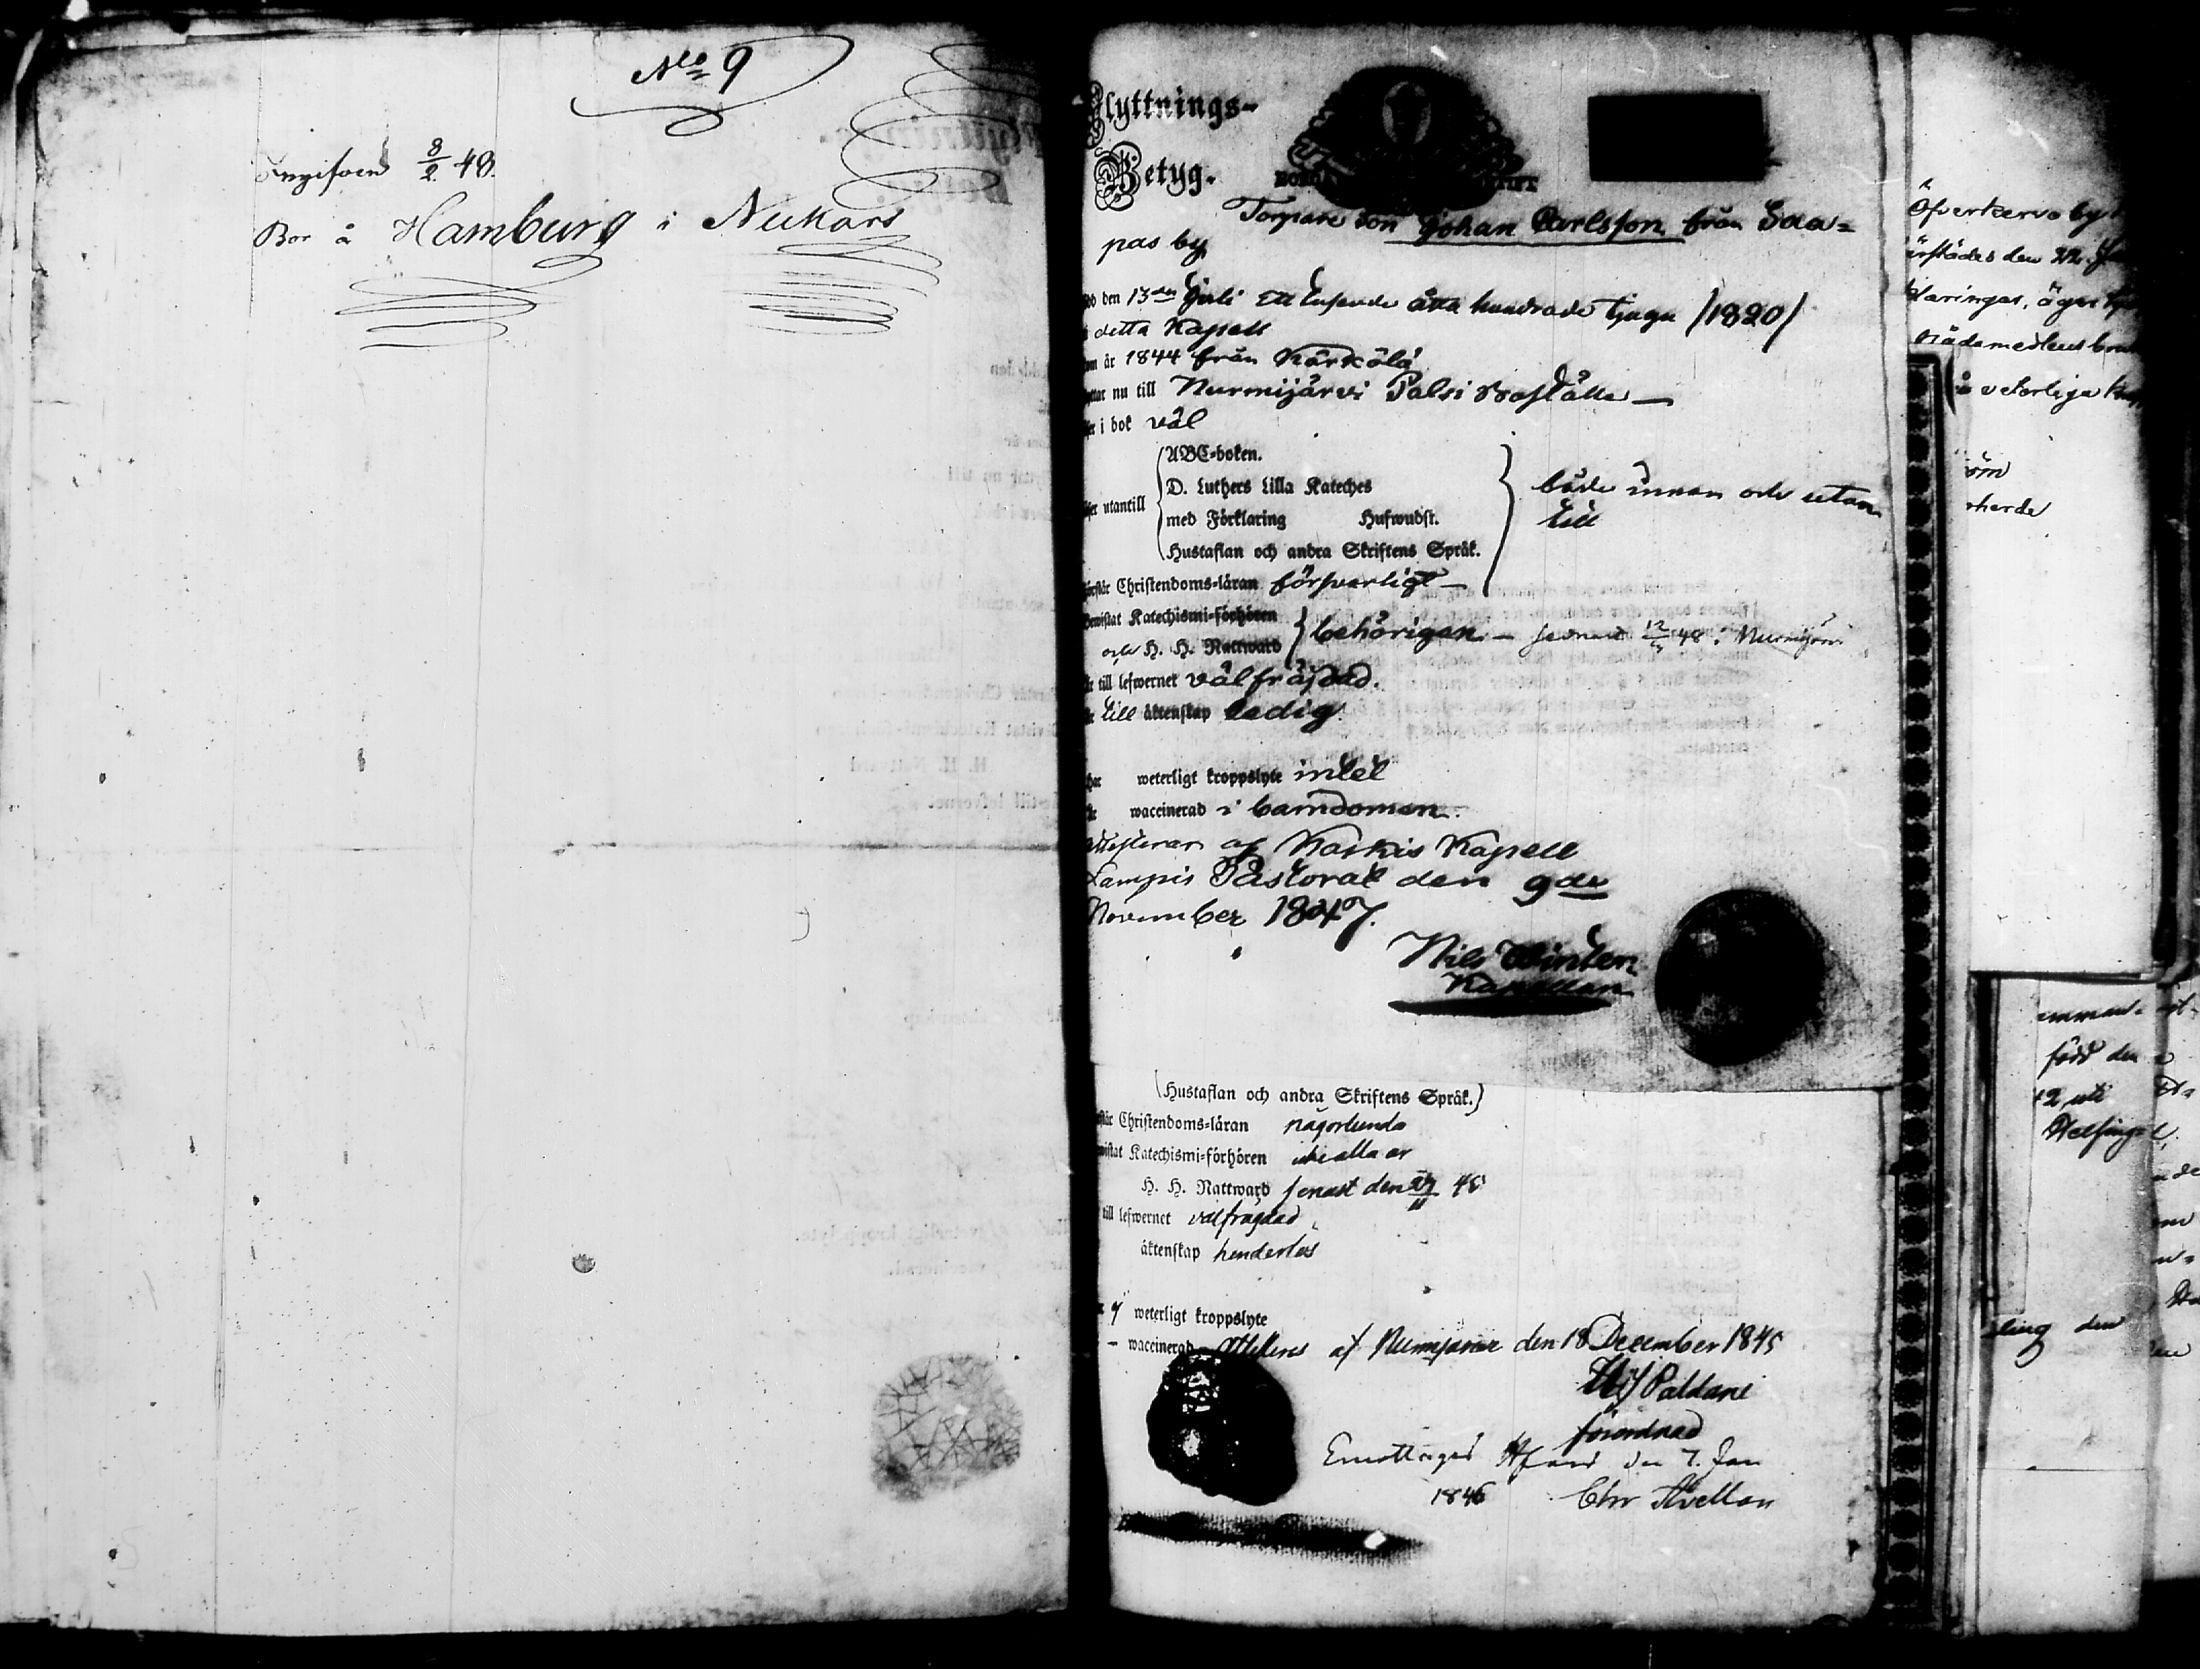 No 9
Ingifven 8/2 48.
Bor å Hamburg i Nukars
Flyttnings-
Betyg.
Torpare Son Johan Carlsson från Saa=
pas by
den 13de Juli Ett tusende åtta hundrade tjugu /1820/
i detta Kapell
år 1844 från Kärkölä
nu till Nurmijärvi Palsi Boställe —
i bok väl
ABC-boken.
D. Luthers Lilla Kateches
utantill
med Förklaring Hufwudst.
Hustaflan och andra Skriftens Språk.
både innan och utan
till
förstår Christendoms-läran försvarligt —
Bewistat Katechismi-förhören
och H. H. Nattward
behörigen — senast 12/ 48 i Nurmijärvi
till lefwernet välfräjdad.
till äktenskap ledig.
har weterligt kroppslyte intet
waccinerad i barndomen.
attesterar af Kärkis Kapell
Lampis Pastorat den 9de
November 1847.
Nils Winter
Kapellan
Hustaflan och andra Skriftens Språk.)
Christendoms-läran någorlunda
Katechismi-förhören icke alla år
H. H. Nattward senast den 27/11 45
till lefwernet välfrägdad
äktenskap henderlös
weterligt kroppslyte
— waccinerad attesteras af Nurmijärvi den 18 December 1845
Paldani
förordnad
Emottaget den 7. Jan
1846 Chr Avellan
Öfverkervo by
därstädes den 22
nådemedlens
veterligt
född den
12 uti
Helsing=
den